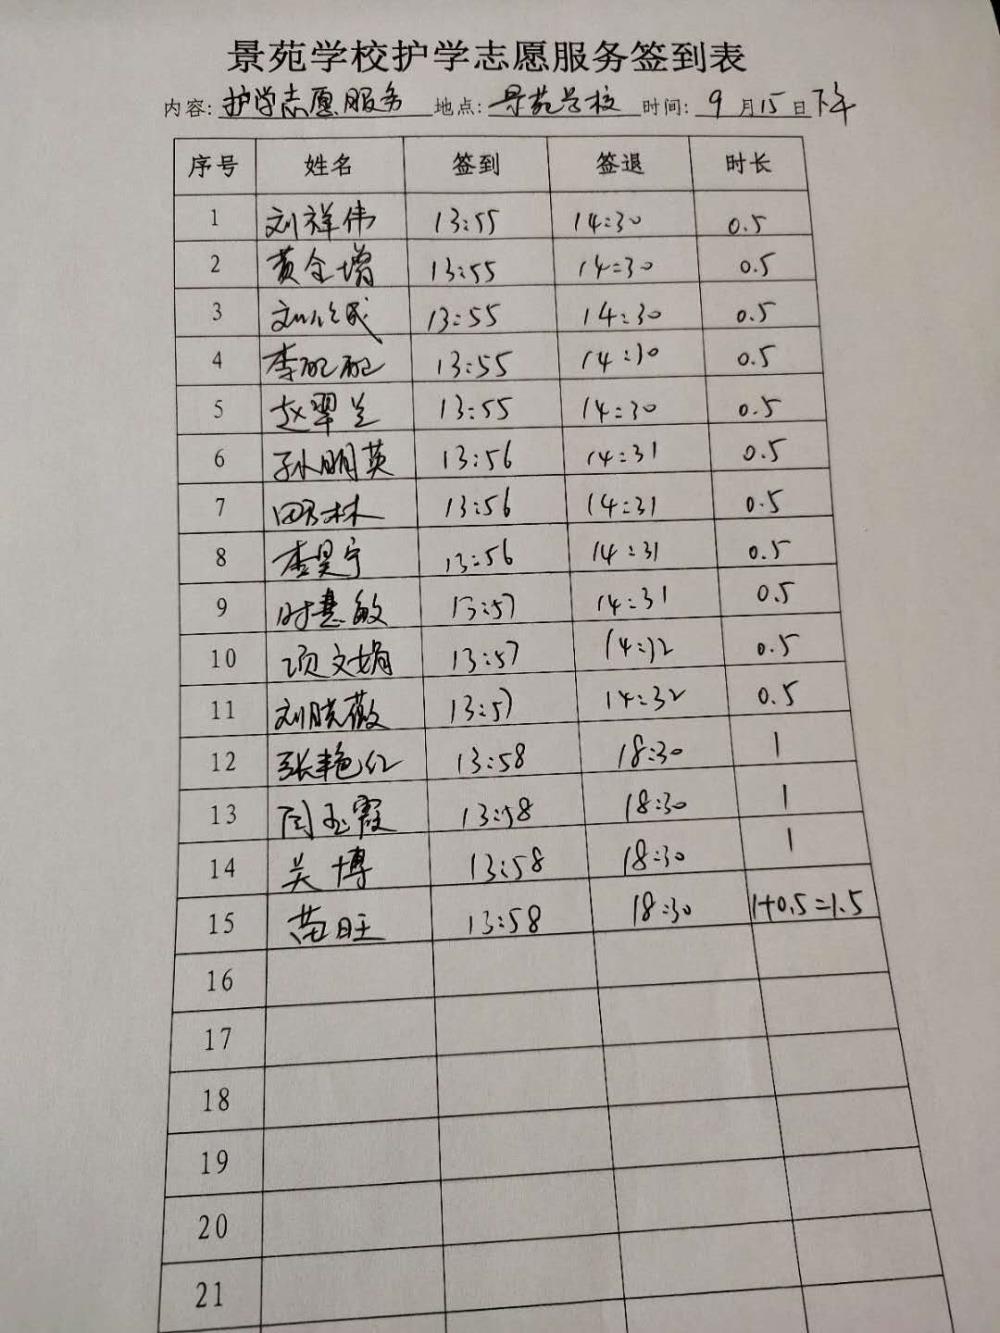 景苑学校护学志愿服务签到表
内容: 护学志愿服务 地点: 景苑学校 时间: 9月15日下午
序号 姓名 签到 签退 时长
1 刘祥伟 13:55 14:30 0.5
2 黄全增 13:55 14:30 0.5
3 13:55 14:30 0.5
4 李配配 13:55 14:30 0.5
5 赵翠兰 13:55 14:30 0.5
6 孙明英 13:56 14:31 0.5
7 13:56 14:31 0.5
8 李昊宁 13:56 14:31 0.5
9 时慧敏 13:57 14:31 0.5
10 项文娟 13:57 14:32 0.5
11 刘晓薇 13:57 14:32 0.5
12 张艳红 13:58 18:30 1
13 闫玉霞 13:58 18:30 1
14 关博 13:58 18:30 1
15 苗旺 13:58 18:30 1+0.5=1.5
16
17
18
19
20
21